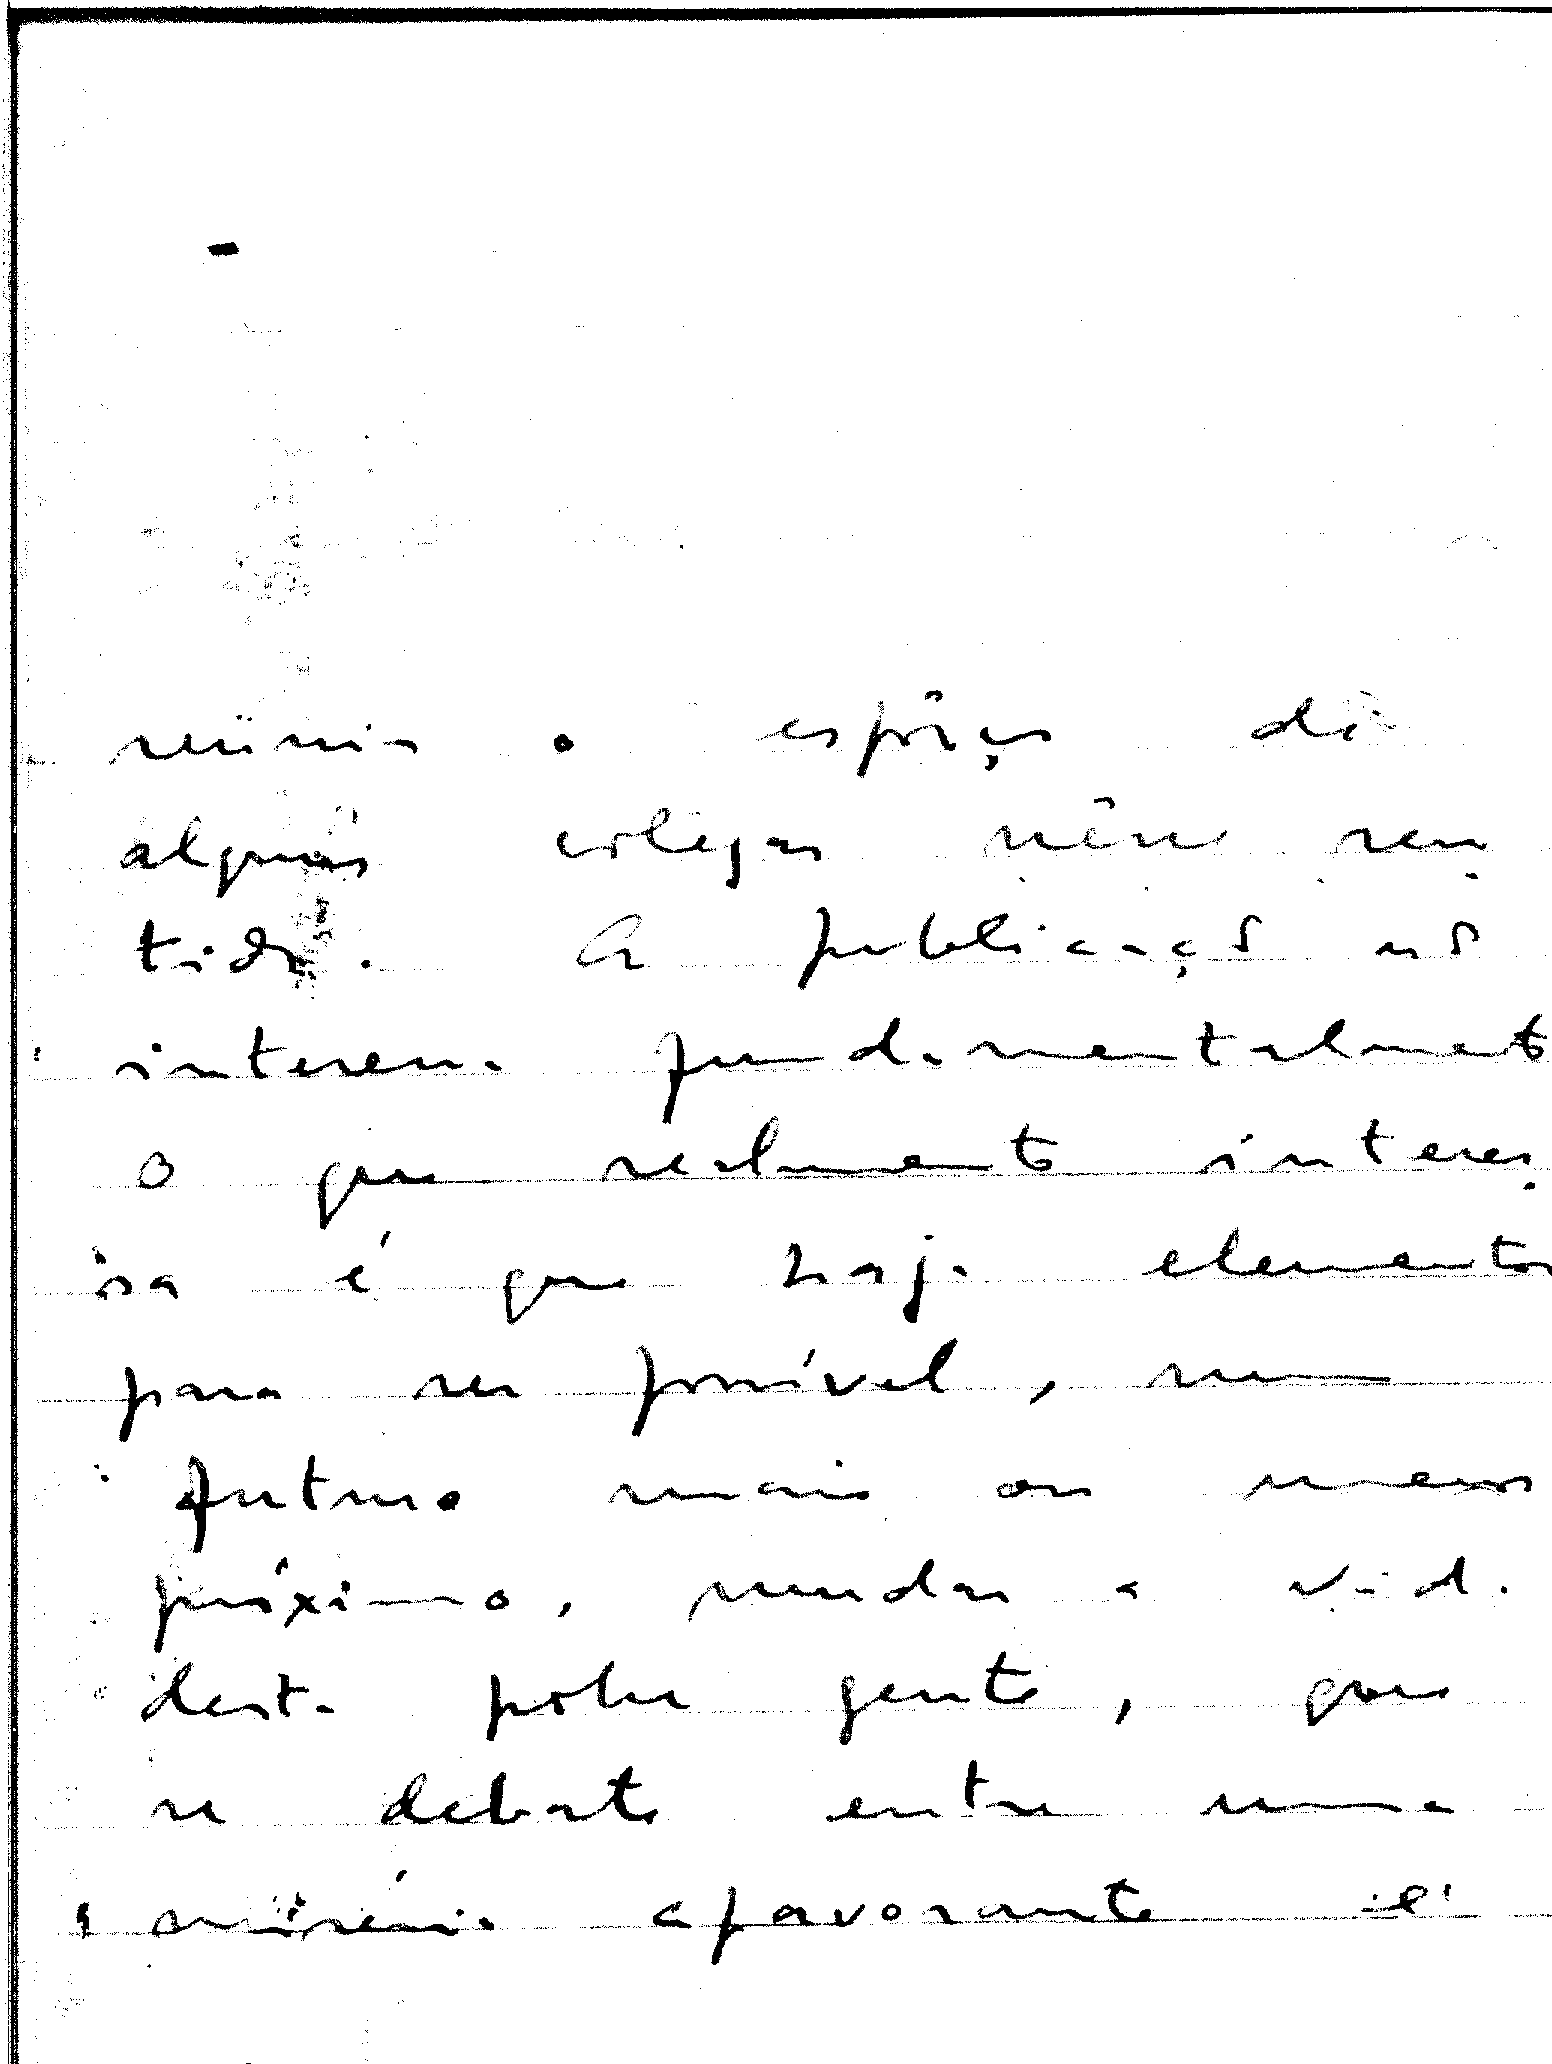 reünir o esfôrço de
alguns colegas nêsse sen
tido. A publicação não
interessa fundamentalmente
O que realmente interes
sa é que haja elementos
para ser possível, num
futuro mais ou menos
próximo, mudar a vida
desta pobre gente, que
se debate entre uma
miséria apavorante e